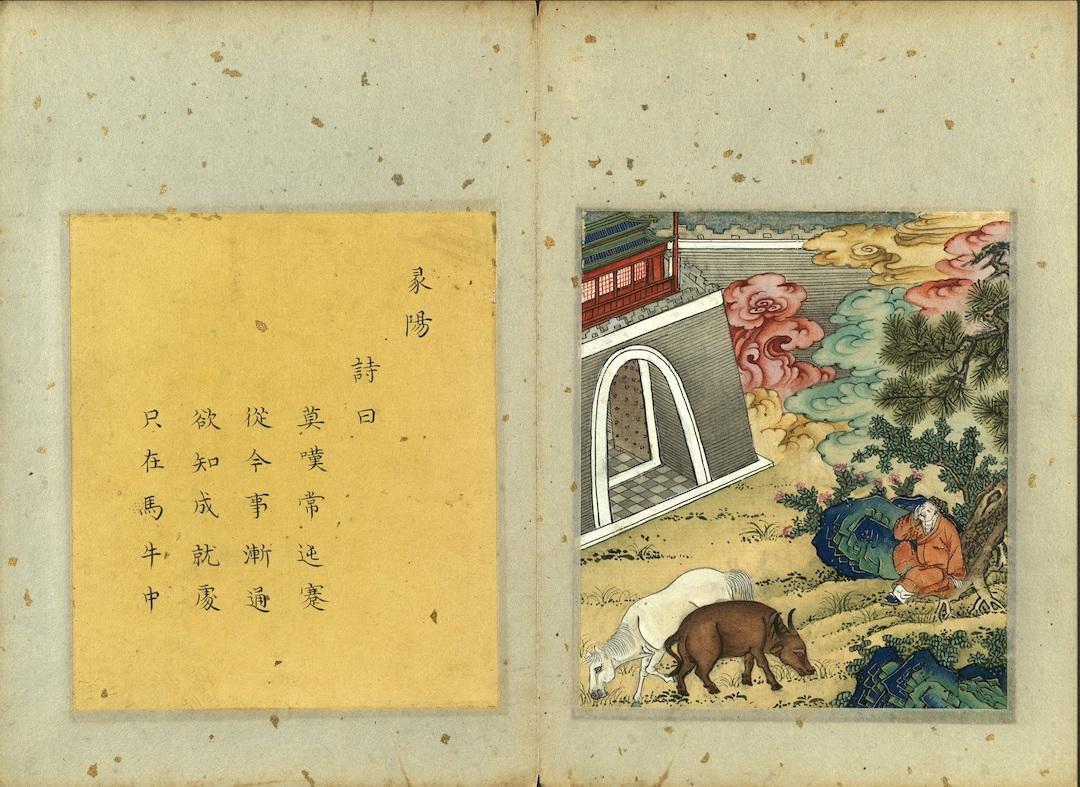 陽
詩曰
莫嘆常迍蹇
從今事漸通
欲知成就處
只在馬牛中